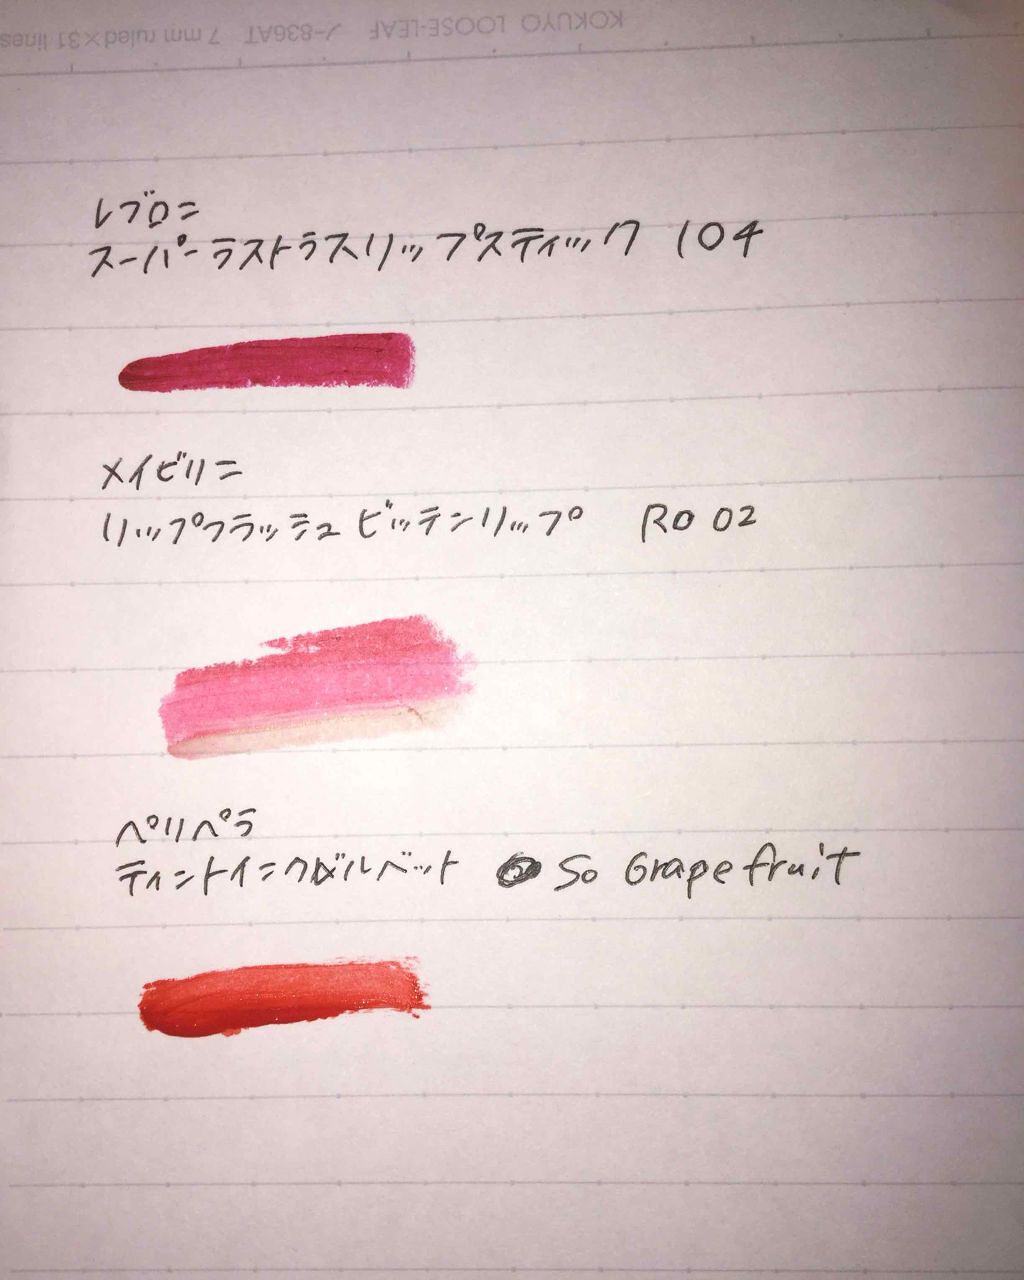 KOKUYO LOOSE-LEAF ノ-836AT 7 mm ruled×31 lines
レブロン
スーパーラストラスリップスティック 104
メイビリン
リップフラッシュ ビッテンリップ RO 02
ペリペラ
ティントインクベルベット So Grapefruit